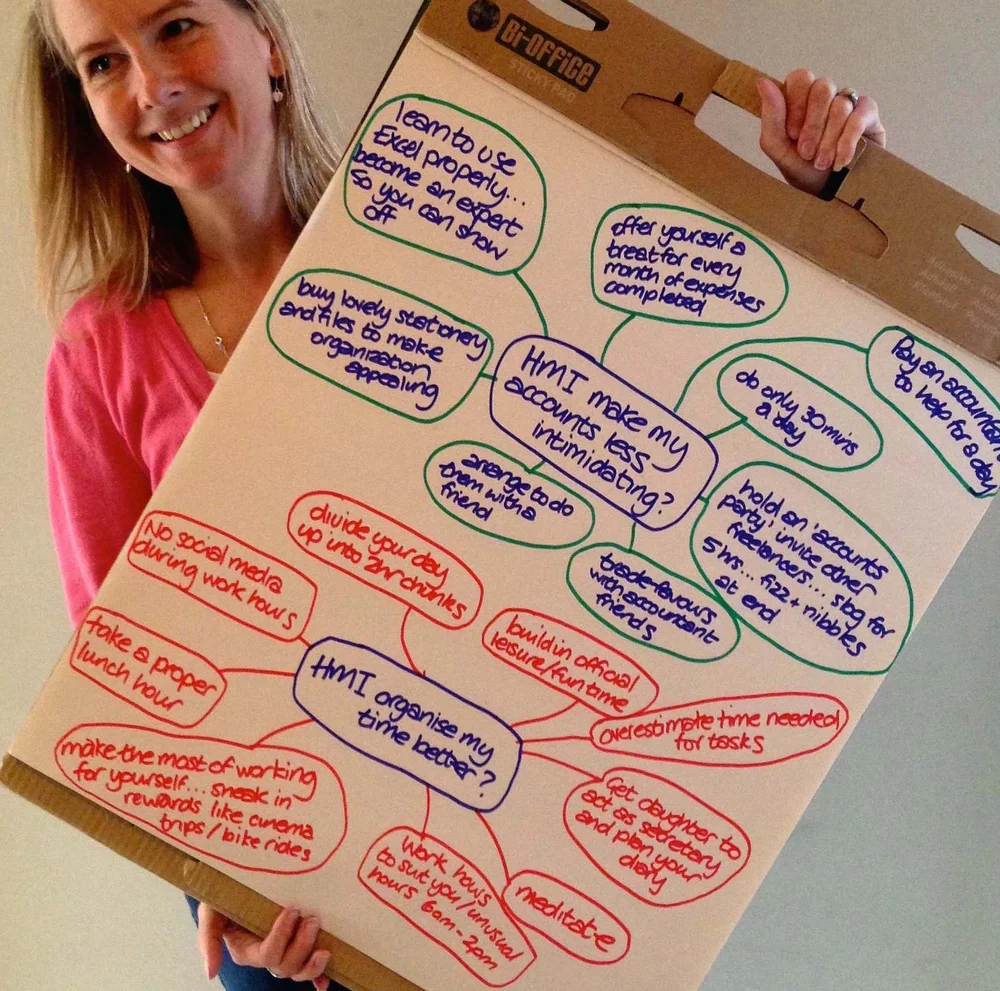 Bi-OFFiCE
STICKY PAD
learn to use
Excel properly...
become an expert
so you can show
off
offer yourself a
treat for every
month of expenses
completed
buy lovely stationery
and files to make
organization
appealing
HMI make my
accounts less
intimidating?
do only 30 mins
a day
Pay an accountant
to help for a day
arrange to do
them with a
friend
hold an 'accounts
party' invite other
freelancers...
5 hrs... fizz + nibbles
at end
trade favours
with accountant
friends
No social media
during work hours
divide your day
up into 2hr chunks
take a proper
lunch hour
build in official
leisure/fun time
HMI organise my
time better?
overestimate time needed
for tasks
make the most of working
for yourself... sneak in
rewards like cinema
trips / bike rides
Get daughter to
act as secretary
and plan your
diary
Work hours
to suit you/unusual
hours 6am - 2pm
meditate